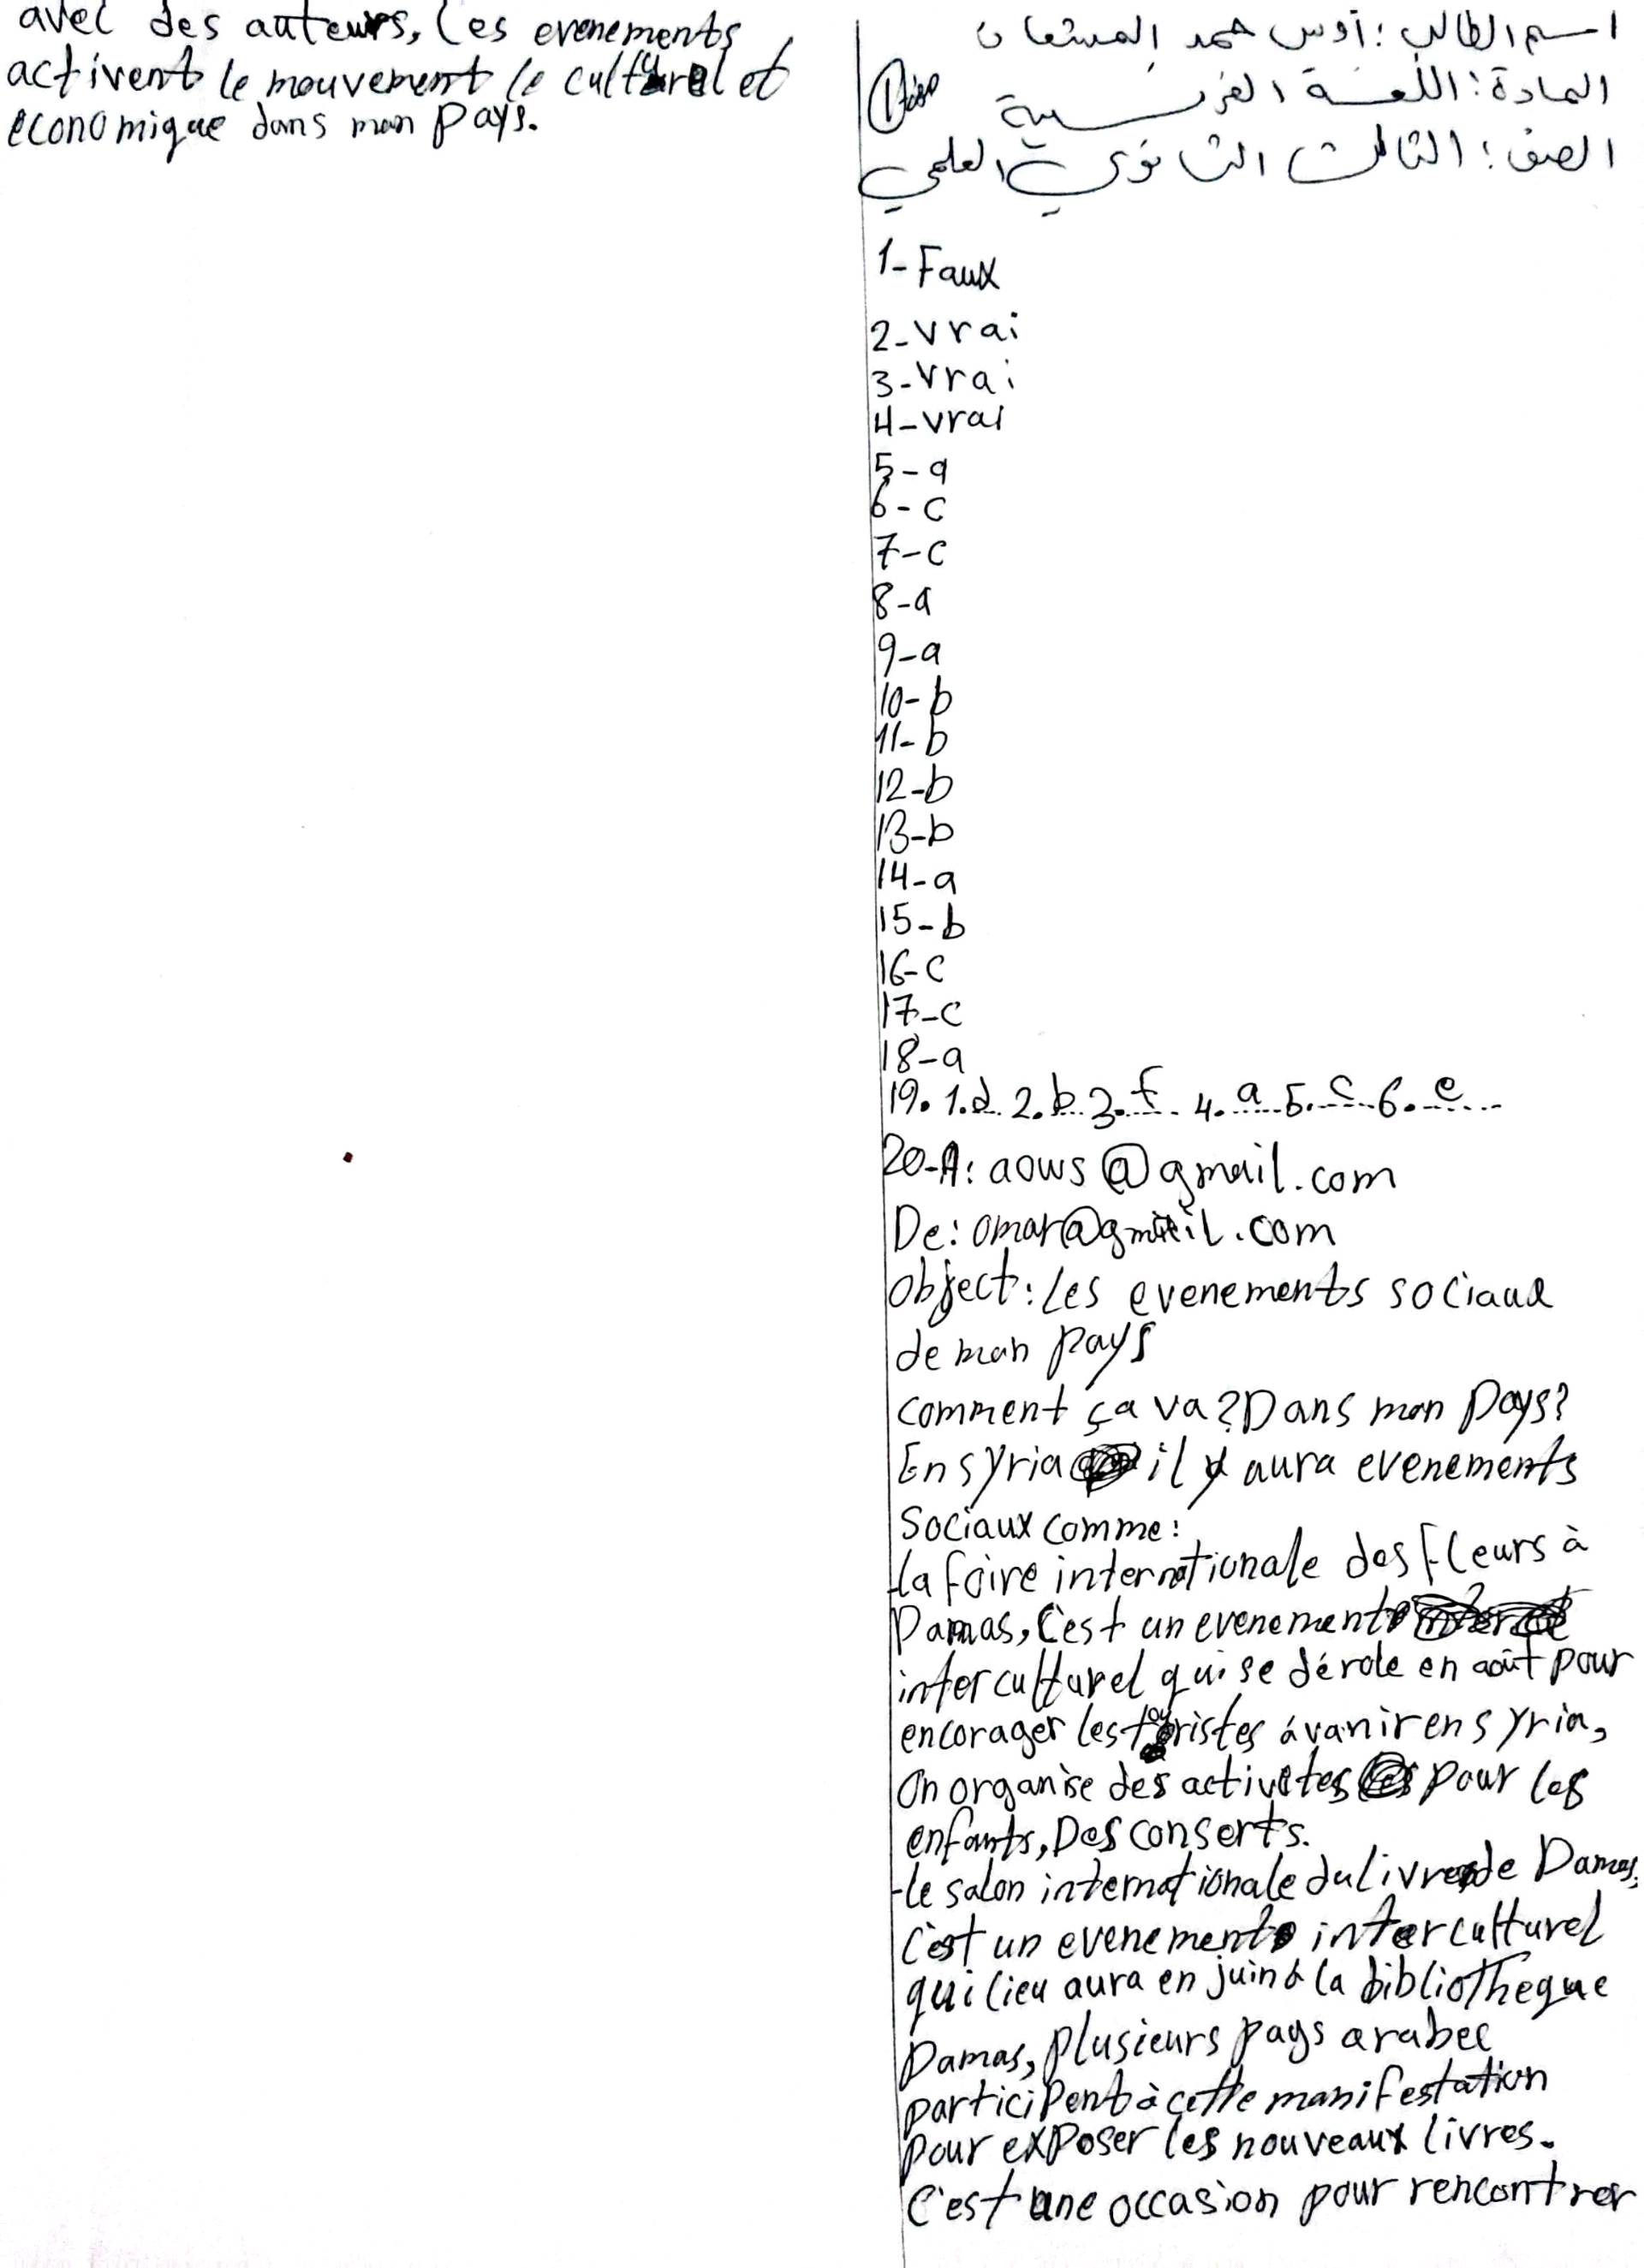 اسم الطالب: أوس حمد المستعان
المادة: اللغة الفرنسية
الصف: الثالث الثانوي العلمي
1- Faux
2- vrai
3- vrai
4- vrai
5- a
6- c
7- c
8- a
9- a
10- b
11- b
12- b
13- b
14- a
15- b
16- c
17- c
18- a
19. 1.d 2.b 3.f 4.a 5.c 6.e
20-A: aows@gmail.com
De: omar@gmail.com
object: les evenements sociaux
de mon pays
comment ça va? Dans mon Pays?
En syria il y aura evenements
sociaux comme:
-la foire internationale des fleurs à
Damas, C'est un evenement
interculturel qui se dérole en août pour
encorager les touristes á vanir en syria,
On organise des activites pour les
enfants, Des conserts.
-le salon internationale du livre de Damas,
C'est un evenement interculturel
qui lieu aura en juin à la bibliotheque
Damas, Plusieurs pays arabec
participent à cette manifestation
pour exposer les nouveaux livres.
C'est une occasion pour rencontrer
avec des auteurs, les evenements
activent le mouvement le culturel et
economique dans mon pays.